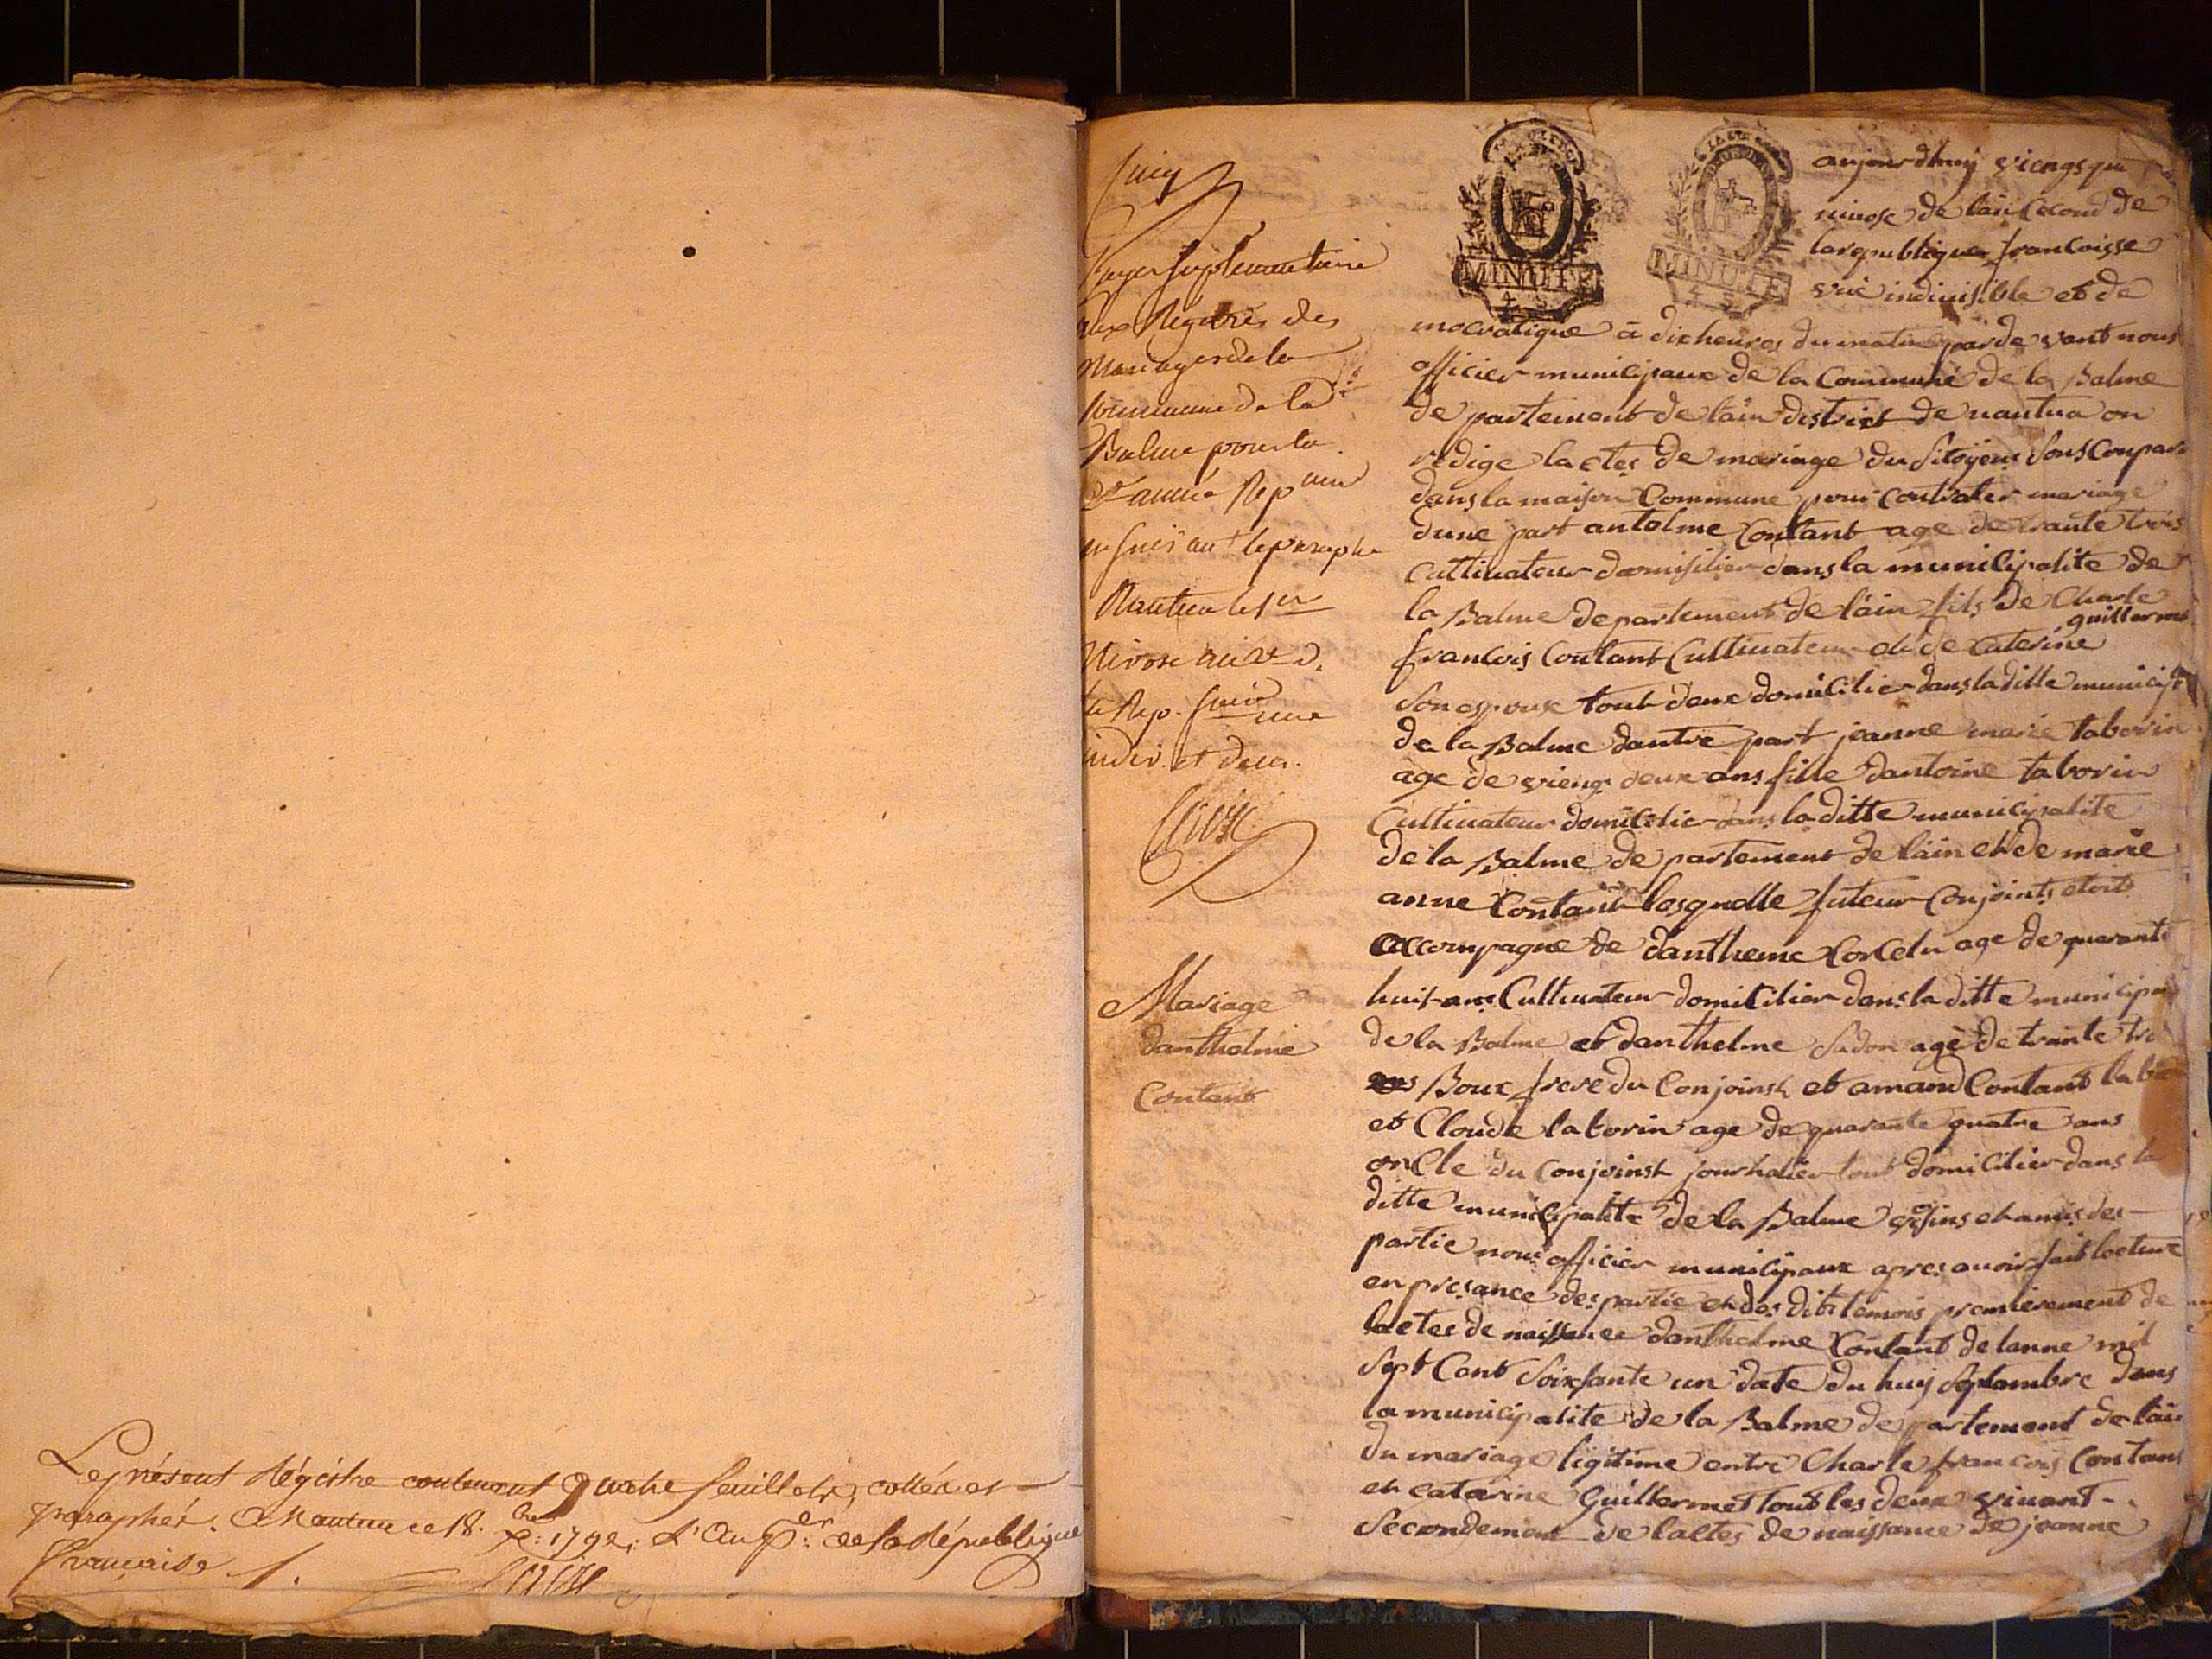 Le présent Régistre contenant quatre feuillets, cottés et
paraphés. A Nantua ce 18. Xbre 1792. L'An pr. de la république
française 1.
suplementaire
aux Régitres des
Mariages de la
Commune de la
Balme pour la
2e année Rep
le paraphe
Nantua le 1er
Nivose an 2e d.
la Rep. une
indiv. et dem.
Mariage
danthelme
Contant
MINUTE
4 S
MINUTE
4 S
aujourdhuy viengt
nivose de lan second de
la republique francoisse
vnie indiuisible et de
mocratique à dix heures du matin par de vant nous
officier municipaux de la Commune de la Balme
de partement de lain district de nantua on
redige lactes de mariage du sitoyens
dans la maison Commune pour contrater mariage
dune part antolme Contant age de trante trois
Cultiuateur domisilier dans la municipalite de
la Balme departement de lain fils de Charle
francois Contant Cultiuateur et de Caterine guillermet
son espouse tout deux domicilier dans la ditte municip
de la Balme dautre part jeanne marie taborin
age de vieng deux ans fille dantoine taborin
Cultiuateur domicilier dans la ditte municipalite
de la Balme de partement de lain et de marie
anne Contant lesquelle futeur Conjoints etoit
accompagne de dantheme age de quarante
huit ans Cultiuateur domicilier dans la ditte municipa
de la Balme et danthelme age de trante
frere du Conjoinst et amand Contant
et Cloude taborin age de quarante quatre ans
oncle du Conjoinst journalier tout domicilier dans la
ditte municipalite de la Balme voisins et amis des
partie nous officier municipaux apres auoir fait lecture
en presance des partie et des dits temois premierement de
lactes de naissance danthelme Contant de lanne mil
sept Cent soixsante un date du huij septambre dans
la municipalite de la Balme de partement de lain
du mariage ligitime entre Charle francois Contant
et catarine Guillermet tout les deux viuant
Secondement de lactes de naissance de jeanne